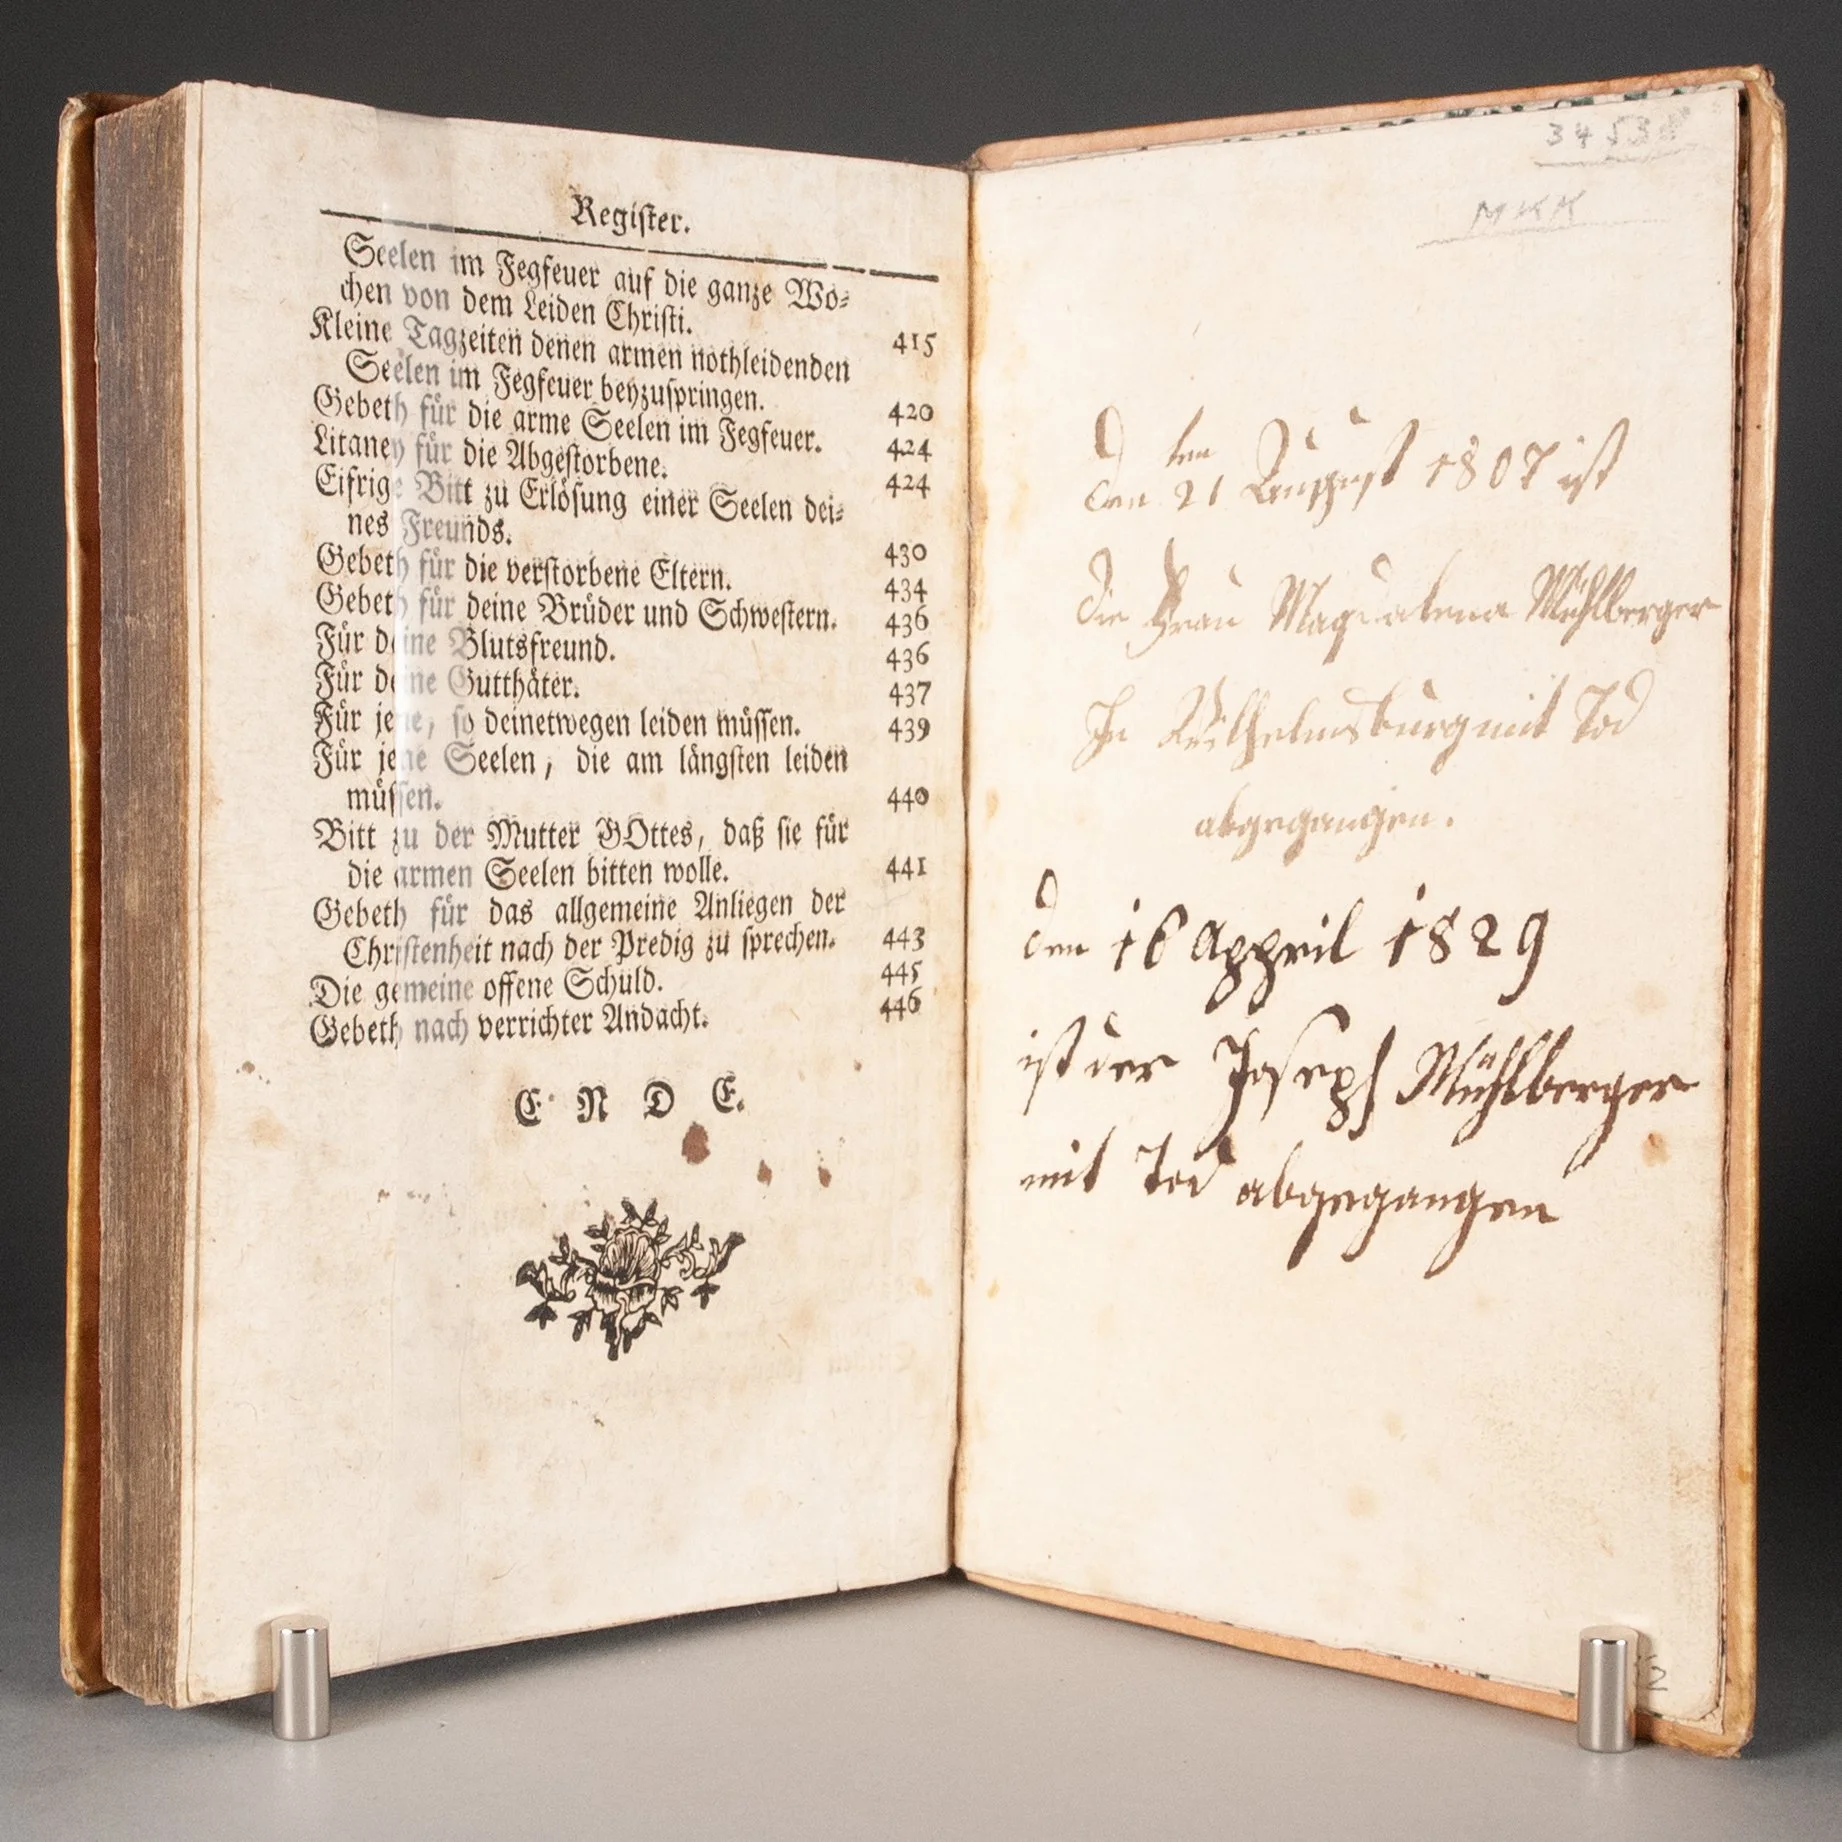 Register.
Seelen im Fegfeuer auf die ganze Wo-
chen von dem Leiden Christi. 415
Kleine Tagzeiten denen armen nothleidenden
Seelen im Fegfeuer beyzuspringen. 420
Gebeth für die arme Seelen im Fegfeuer. 424
Litaney für die Abgestorbene. 424
Eifrige Bitt zu Erlösung einer Seelen dei-
nes Freunds. 430
Gebeth für die verstorbene Eltern. 434
Gebeth für deine Brüder und Schwestern. 436
Für deine Blutsfreund. 436
Für deine Gutthäter. 437
Für jene, so deinetwegen leiden müssen. 439
Für jene Seelen, die am längsten leiden
müssen. 440
Bitt zu der Mutter GOttes, daß sie für
die armen Seelen bitten wolle. 441
Gebeth für das allgemeine Anliegen der
Christenheit nach der Predig zu sprechen. 443
Die gemeine offene Schuld. 445
Gebeth nach verrichter Andacht. 446
E N D E.
3453
MKK
den 21ten August 1807 ist
die Frau Magdalena Mühlberger
In Wilhelmsburg mit Tod
abgegangen.
den 16 Appril 1829
ist der Joseph Mühlberger
mit Tod abgegangen